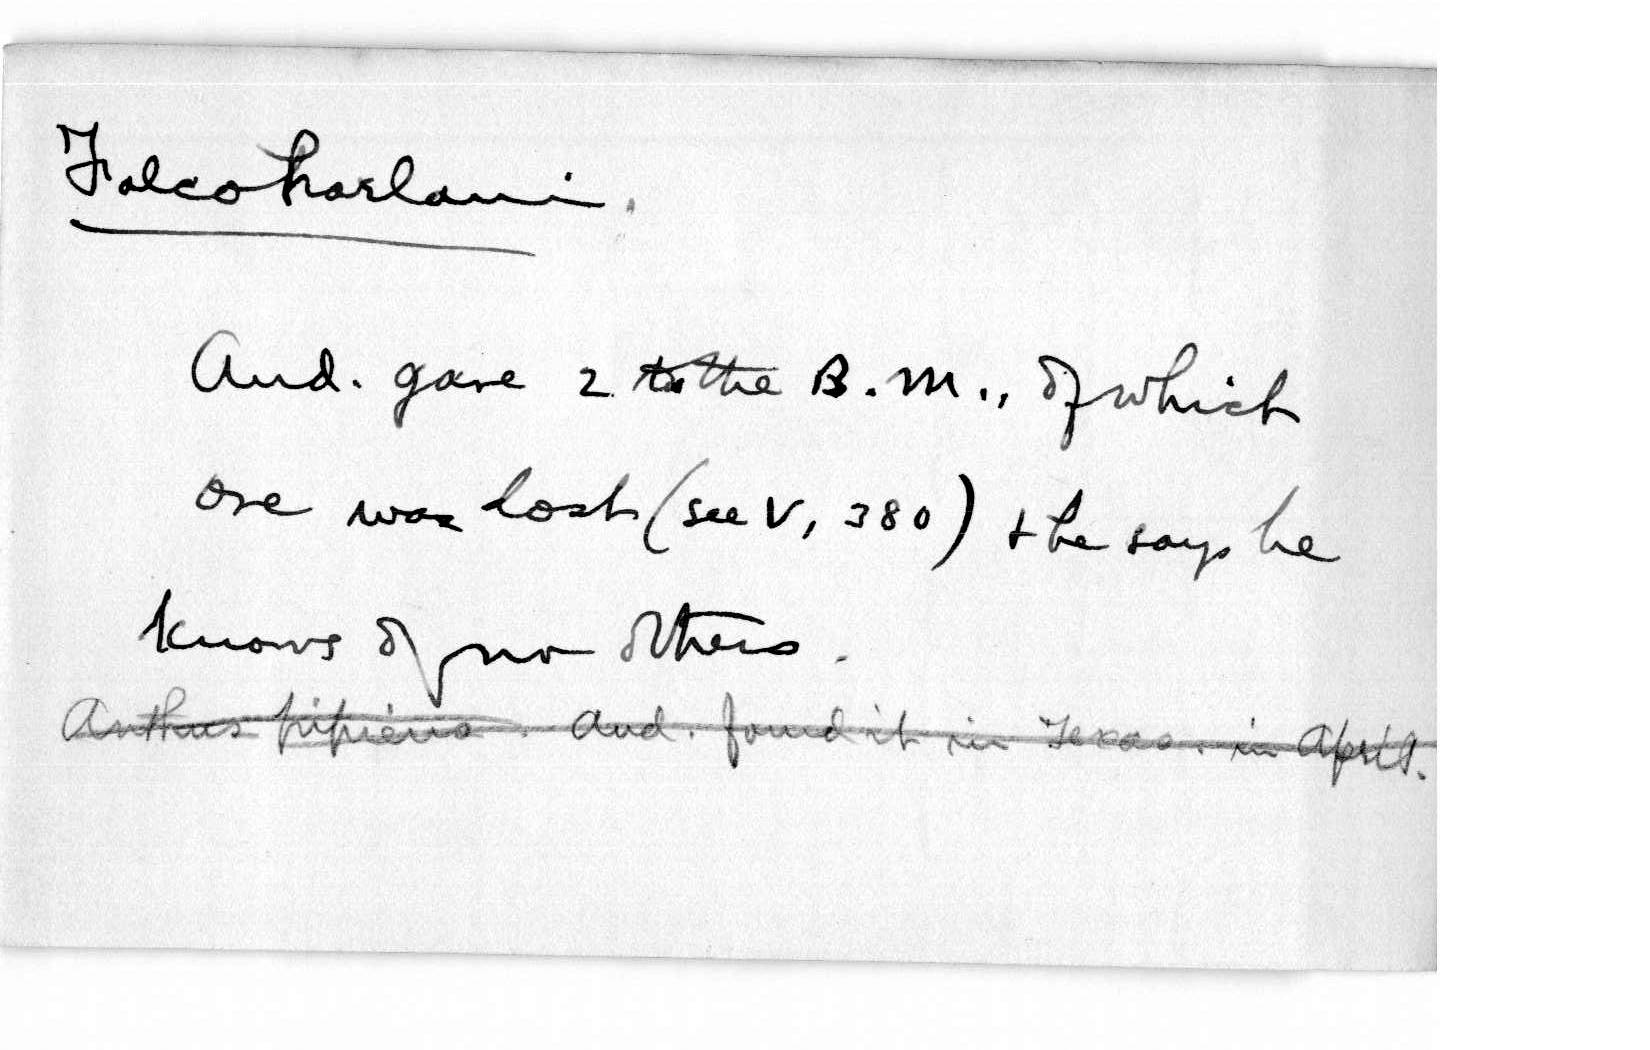 Falco harlani.
Aud. gave 2 to the B.M., of which
one was lost (see V, 380) & he says he
knows of no others.
Anthus pipiens. Aud. found it in Texas. in April.